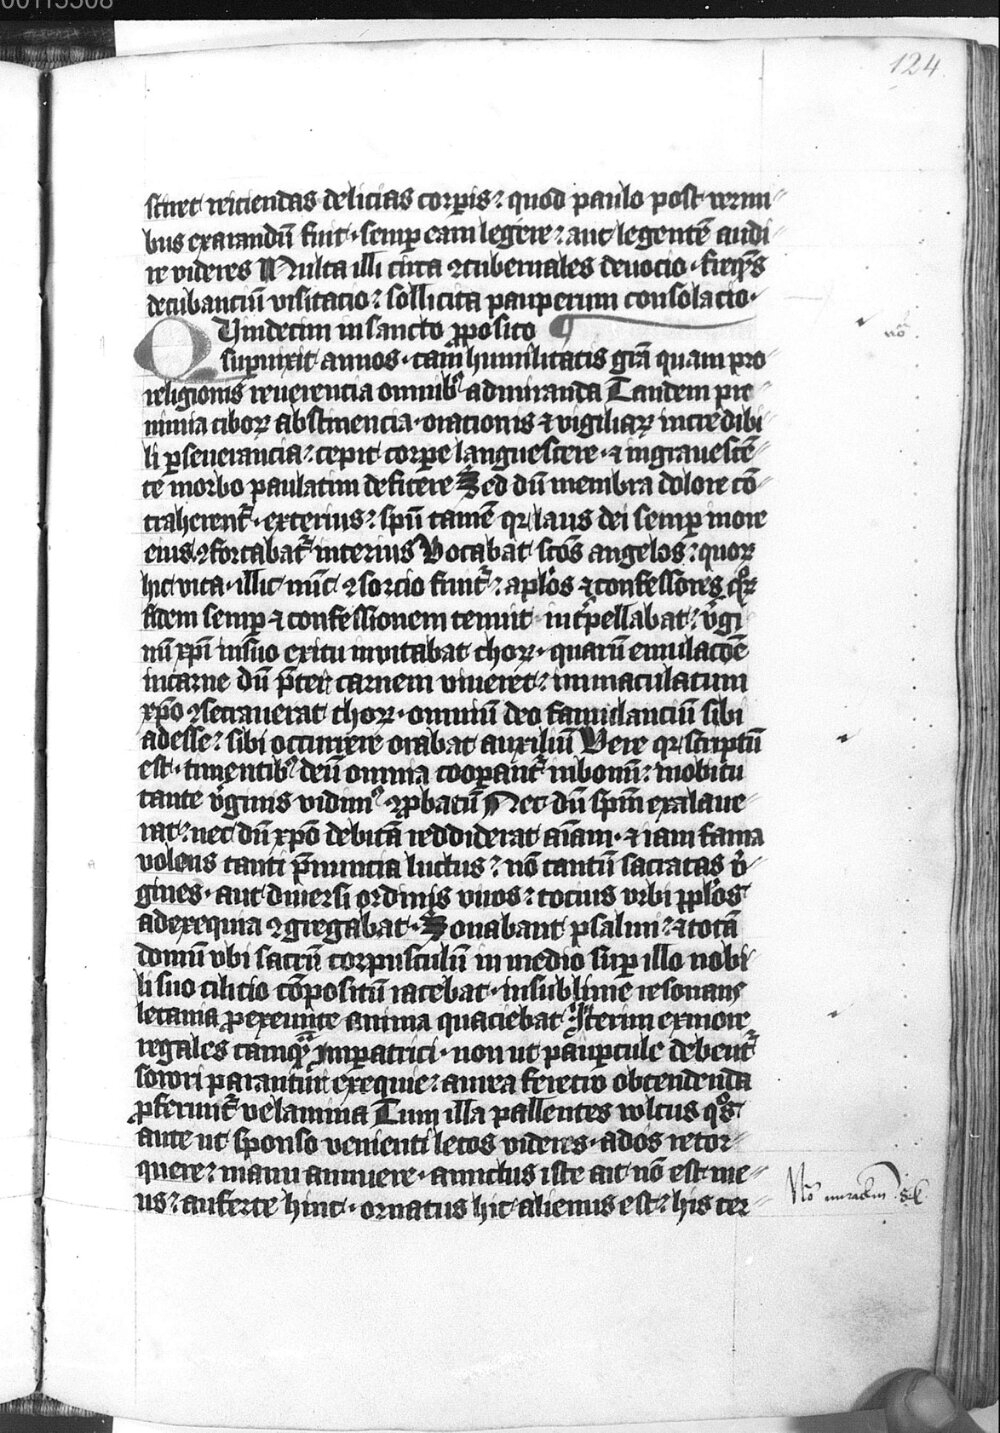 124
sciret reiciendas delicias corꝑis ⁊ quod paulo post vermi
bus exarandū fuit · semꝑ eam legere ⁊ aut legentē audi
re videres Multa illi circa ꝯtubernales deuocio · freq̄ns
decubanciū visitacio ⁊ sollicita pauperum consolacio ·
Quindecim in sancto ꝓposito
supuixit annos · tam humilitatis gr̄a quam pro
religionis reuerencia omnibꝰ admiranda Tandem pre
nimia ciboꝝ abstinencia · orationis ⁊ vigiliaꝝ incredibi
li ꝑseuerancia ⁊ cepit corꝑe languescere · ⁊ ingrauescē
te morbo paulatim deficere Sed dū membra dolore cō
traherent᷑ · exterius ⁊ spū tamē qꝛ laus dei semꝑ in ore
eius ꝯfortabat᷑ interius Vocabat scōs angelos ⁊ quoꝝ
hic vita · illic nūc ꝯsorcio fruit᷑ ⁊ apl̄os ⁊ confessores qͦꝝ
fidem semꝑ ⁊ confessionem tenuit · int̓pellabat ⁊ v̓gi
nū xp̄i in suo exitu inuitabat choꝝ · quarū emulac̄oe
in carne dū p̄ter carnem viueret ⁊ immaculatum
xp̄o ꝯsecrauerat thoꝝ · omniū deo famulanciū sibi
adesse ⁊ sibi occurrere orabat auxiliū Vere qꝛ scriptū
est · timentibꝰ deū omnia cooꝑant᷑ in bonū ⁊ in obitu
tante v̓ginis vidimꝰ ꝯꝓbatū Nec dū spm̄ exalaue
rat ⁊ nec dū xp̄o debitā reddiderat aīam · ⁊ iam fama
volans tanti p̄nuncia luctus ⁊ nō tantū sacratas v̓
gines · aut diuersi ordinis viros ⁊ tocius vrbi ppl̄os
ad exequia ꝯgregabat · Sonabant psalmi ⁊ ⁊ totā
domū vbi sacrū corpusculū in medio suꝑ illo nobi
li suo cilicio cōpositū iacebat · in sublime resonans
letania ꝓ exeunte anima quaciebat Iterim ex more
regales tamqᷓ Imꝑatrici · non ut pauꝑcule debent᷑
sorori parantur exequie ⁊ aurea feretro obtendenda
ꝓferunt᷑ velamina Tum illa pallentes vvltus qͦs
ante ut sponso venienti letos videres · ad os retor
quere ⁊ manu annuere · amictus iste ait nō est me
us ⁊ auferte hinc · ornatus hic alienus est ⁊ his ter
nō